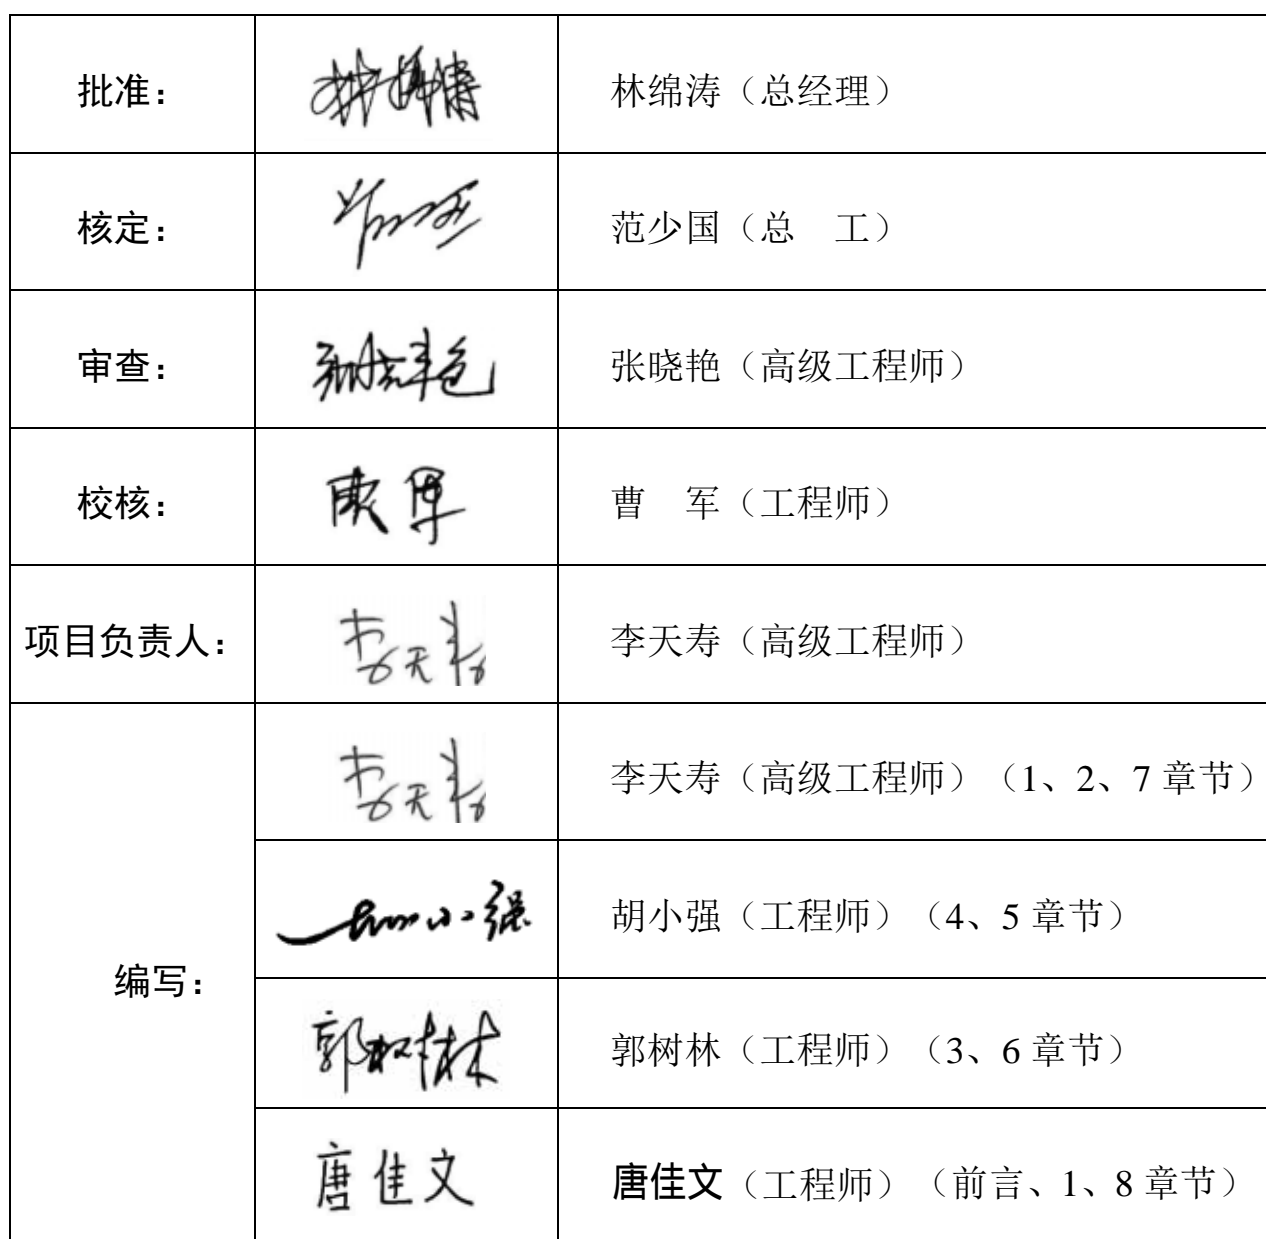 批准： 林绵涛 林绵涛（总经理）
核定： 范少国（总　工）
审查： 张晓艳 张晓艳（高级工程师）
校核： 曹军 曹　军（工程师）
项目负责人： 李天寿 李天寿（高级工程师）
李天寿 李天寿（高级工程师）（1、2、7 章节）
胡小强 胡小强（工程师）（4、5 章节）
编写：
郭树林 郭树林（工程师）（3、6 章节）
唐佳文 唐佳文（工程师）（前言、1、8 章节）